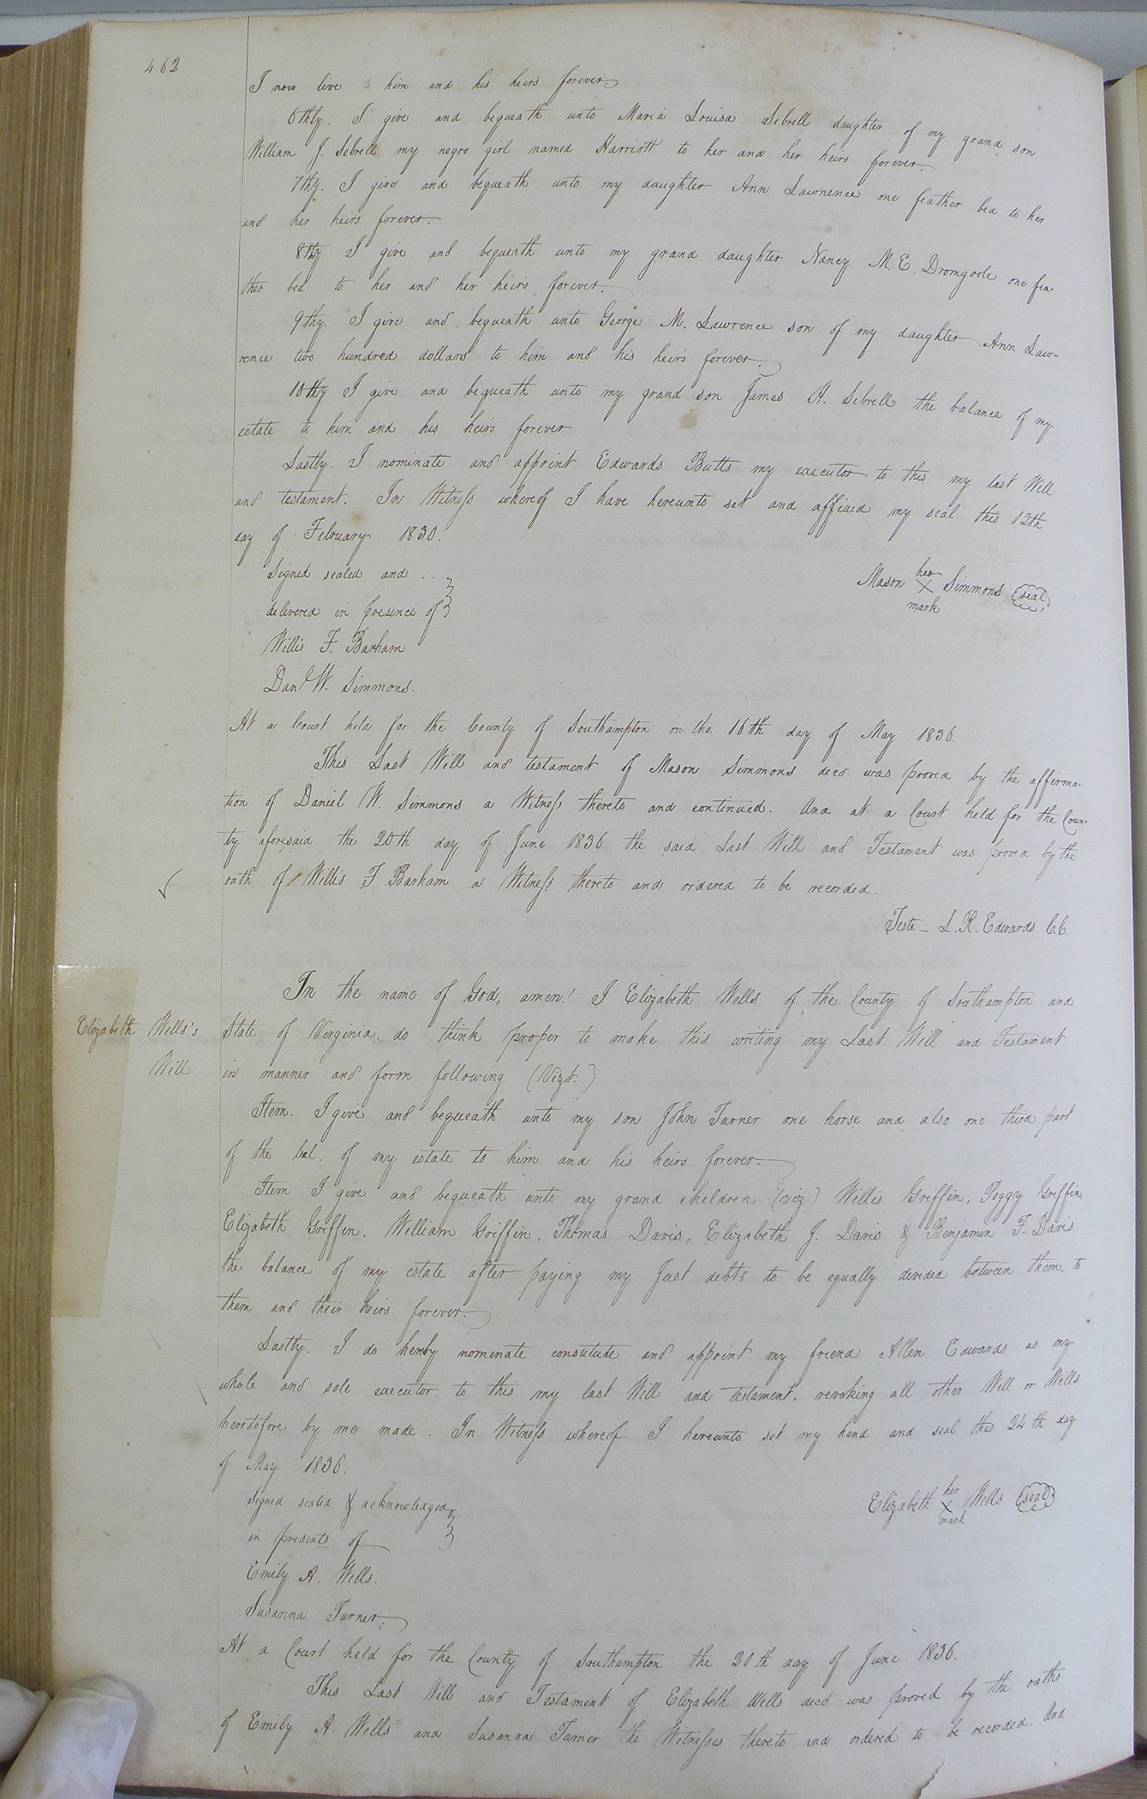 462
I now live to him and his heirs forever.
6thly. I give and bequeath unto Maria Louisa Sebrell daughter of my grand son
William J. Sebrell my negro girl named Harriott to her and her heirs forever.
7thly. I give and bequeath unto my daughter Ann Lawrence one feather bed to her
and her heirs forever.
8thy I give and bequeath unto my grand daughter Nancy M. E. Dromgoole one fea-
ther bed to her and her heirs forever.
9thy. I give and bequeath unto George M. Lawrence son of my daughter Ann Law-
rence two hundred dollars to him and his heirs forever.
10thy I give and bequeath unto my grand son James A. Sebrell the balance of my
estate to him and his heirs forever
Lastly. I nominate and appoint Edwards Butts my executor to this my last Will
and testament. In Witness whereof I have hereunto set and affixed my seal this 12th
day of February 1830.
Signed sealed and ..
delivered in presence of
Mason her X mark Simmons (seal)
Willis F. Barham
Danl W. Simmons.
At a Court held for the County of Southampton on the 16th day of May 1836.
This Last Will and testament of Mason Simmons decd was proved by the affirma-
tion of Daniel W. Simmons a Witness thereto and continued. And at a Court held for the Coun-
ty aforesaid the 20th day of June 1836 the said Last Will and Testament was proved by the
oath of Willis F Barham a Witness thereto and ordered to be recorded.
Teste – L. R. Edwards C.C.
Elizabeth Wells's
Will
In the name of God, amen! I Elizabeth Wells of the County of Southampton and
State of Virginia. do think proper to make this writing my Last Will and Testament
in manner and form following (Vizt.)
Item. I give and bequeath unto my son John Turner one horse and also one third part
of the bal. of my estate to him and his heirs forever.
Item I give and bequeath unto my grand children (viz) Willis Griffin, Peggy Griffin,
Elizabeth Griffin, William Griffin, Thomas Davis, Elizabeth J. Davis & Benjamin F. Davis
the balance of my estate after paying my Just debts to be equally devided between them, to
them and their heirs forever.
Lastly. I do hereby nominate constitute and appoint my friend Allen Edwards as my
whole and sole executor to this my last Will and testament, revoking all other Will or Wills
heretofore by me made. In Witness whereof I hereunto set my hand and seal this 24th day
of May 1836.
Signed sealed & acknowledged
in presents of
Elizabeth her X mark Wells (seal)
Emily A. Wells.
Susanna Turner.
At a Court held for the County of Southampton the 20th day of June 1836.
This Last Will and Testament of Elizabeth Wells decd was proved by the oaths
of Emily A. Wells and Susanna Turner the Witnesses thereto and ordered to be recorded. And